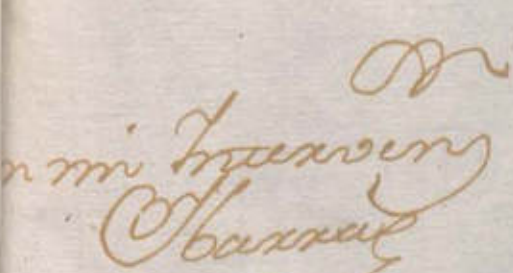 n mi Interven
Ibarra